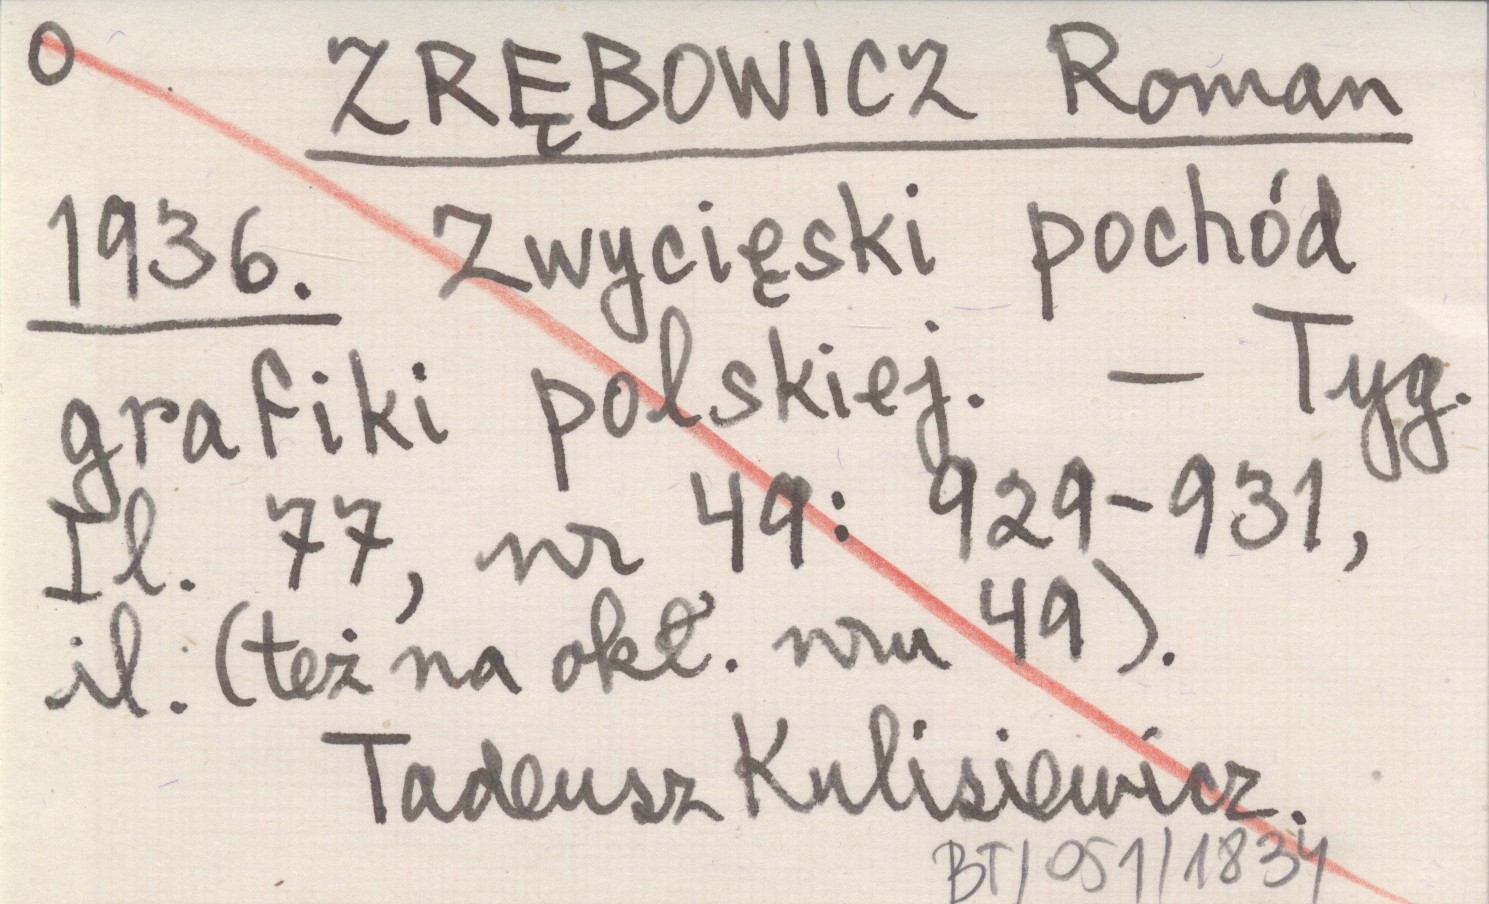 O ZRĘBOWICZ Roman
1936. Zwycięski pochód
grafiki polskiej. — Tyg.
Il. 77, nr 49: 929-931,
il. (też na okł. nru 49).
Tadeusz Kulisiewicz.
BT/051/1834